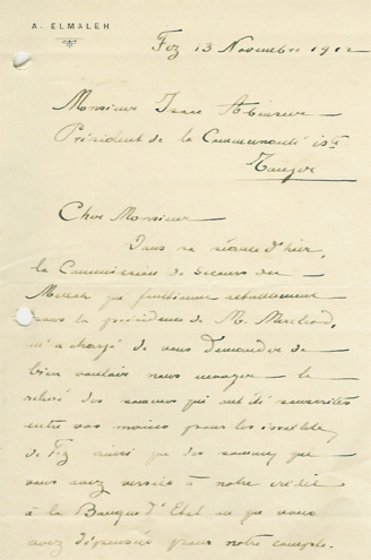 A. ELMALEH
Fez 13 Novembre 1912
Monsieur Isaac Abensur
Président de la Communauté isr^te
Tanger
Cher Monsieur
Dans sa séance d'hier,
la Commission de Secours du
Mellah qui fonctionne actuellement
sous la présidence de M. Marchand,
m'a chargé de vous demander de
bien vouloir nous envoyer le
relevé des sommes qui ont été souscrites
entre vos mains pour les israélites
de Fez ainsi que des sommes que
vous avez versées à notre crédit
à la Banque d'Etat ou que vous
avez dépensées pour notre compte.